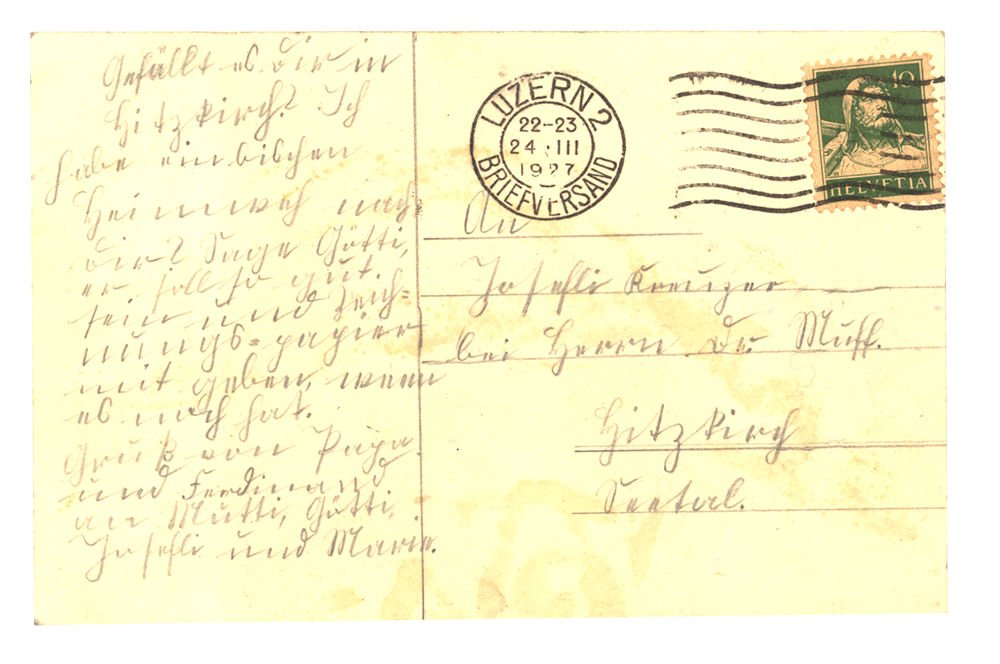 Gefällt es dir in
Hitzkirch? Ich
habe ein bischen
Heimweh nach
dir? Sage Götti,
er soll so gut.
sein und Zeich=
nungs=papier
mit geben, wenn
es noch hat.
Gruß von Papa
und Ferdinand
an Mutti, Götti,
Josefli und Marie.
LUZERN 2
22-23
24.III
1927
BRIEFVERSAND
10
HELVETIA
An
Josefli Kreuzer
bei Herrn Dr. Muff.
Hitzkirch
Seetal.